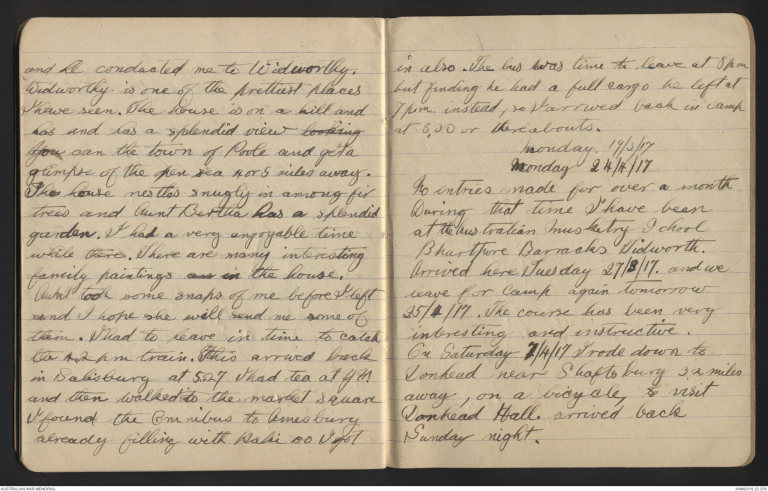 and he conducted me to Widworthy.
Widworthy is one of the prettiest places
I have seen. The house is on a hill and
has and has a splendid view looking
You can the town of Poole and get a
glimpse of the open sea 4 or 5 miles away.
The house nestles snugly in among fir
trees and Aunt Bertha has a splendid
garden. I had a very enjoyable time
while there. There are many interesting
family paintings in the house.
Aunt took some snaps of me before I left
and I hope she will send me some of
them. I had to leave in time to catch
the 4.2 pm train. This arrived back
in Salisbury at 5.27. I had tea at YM
and then walked to the market square
I found the Omnibus to Amesbury
already filling with so I got
in also. The bus was time to leave at 8 pm
but finding he had a full cargo he left at
7 pm. instead, so I arrived back in camp
at or thereabouts.
Monday. 19/3/17
Monday 24/4/17
No entries made for over a month
During that time I have been
at the Australian Musketry School
Bhurtpore Barracks Tidworth.
Arrived here Tuesday 27/3/17. and we
leave for Camp again tomorrow
25/4/17. The course has been very
interesting and instructive.
On Saturday 7/4/17 I rode down to
Donhead near Shaftsbury 32 miles
away, on a bicycle, to visit
Donhead Hall. arrived back
Sunday night.
AUSTRALIAN WAR MEMORIAL